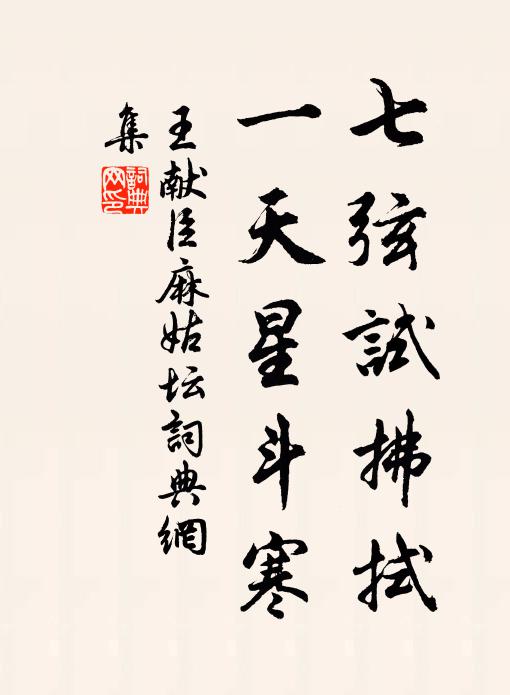 七弦試拂拭
一天星斗寒
王献臣麻姑坛詞典網
集
詞典网印